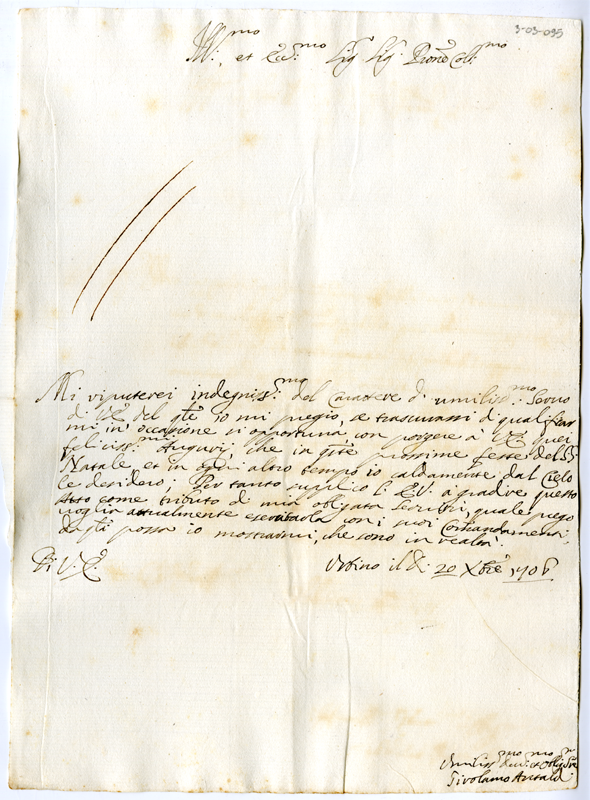 3-03-095
Ill.mo et Ecc.mo Sig.r Sig.r Pron.e Col.mo
Mi riputerei indegniss.mo del Carattere d'umiliss.mo Servo
di V.E. del q.le io mi pregio, se trascurassi di qualificar
mi in occasione sì opportuna con porgere à V.E. quei
feliciss.mi Augurij, che in q.te prossime feste del S.
Natale et in ogni altro tempo io caldamente dal Cielo
le desidero; Per tanto supplico l'E.V. a gradire questo
Atto come tributo di mia obligata Servitù, quale prego
voglia attualmente esercitarla con i suoi Comandamenti,
da q.li possa io mostrarmi, che sono in realtà
Di V.E.
Urbino il dì 20 Xbre 1706
Umiliss.mo et Oblig.mo
Girolamo